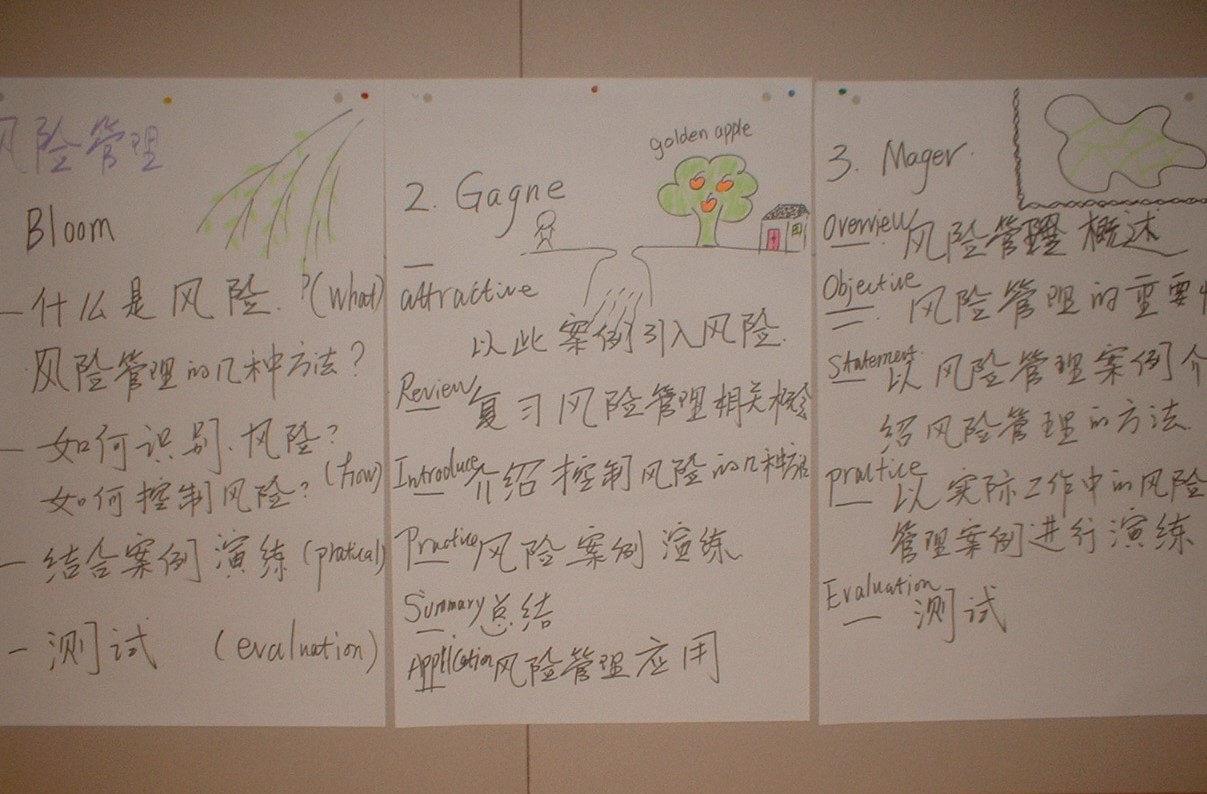 风险管理
Bloom
– 什么是风险.?(what)
风险管理的几种方法?
– 如何识别.风险?
如何控制风险?(how)
– 结合案例演练(pratical)
– 测试 (evaluation)
golden apple
2. Gagne
attractive
以此案例引入风险.
Review 复习风险管理相关概念
Introduce 介绍控制风险的几种方法
Practice 风险案例演练.
Summary 总结
Application 风险管理应用
3. Mager.
Overview 风险管理概述
Objective 风险管理的重要
Statement 以风险管理案例介
绍风险管理的方法.
practice 以实际工作中的风险
管理案例进行演练
Evaluation 测试